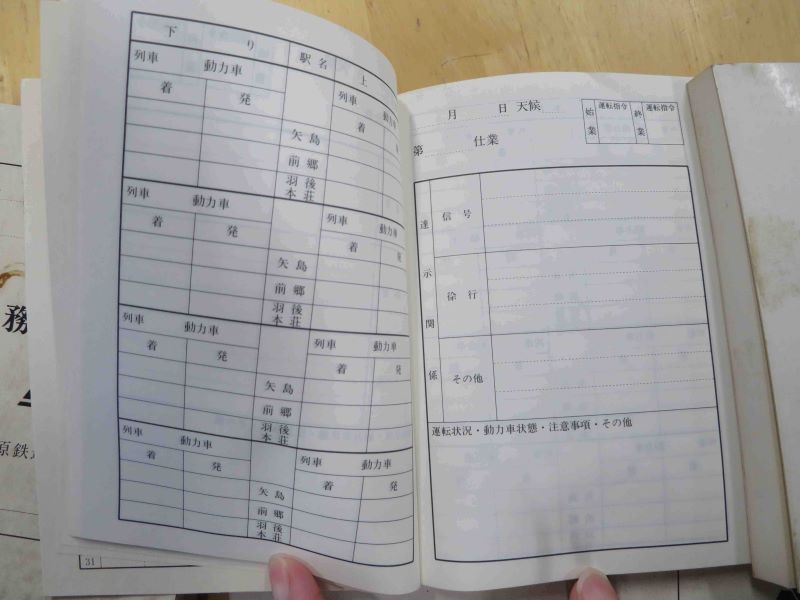 下 り 駅名 上
列車 動力車 列車
着 発 着
矢島
前郷
羽後
本荘
列車 動力車 列車 動力車
着 発 着 発
矢島
前郷
羽後
本荘
列車 動力車 列車 動力車
着 発 着 発
矢島
前郷
羽後
本荘
列車 動力車 列車 動力車
着 発 着 発
矢島
前郷
羽後
本荘
31
月 日 天候
始業 運転指令 終業 運転指令
第 仕業
達示関係
信号
徐行
その他
運転状況・動力車状態・注意事項・その他
務
原鉄道